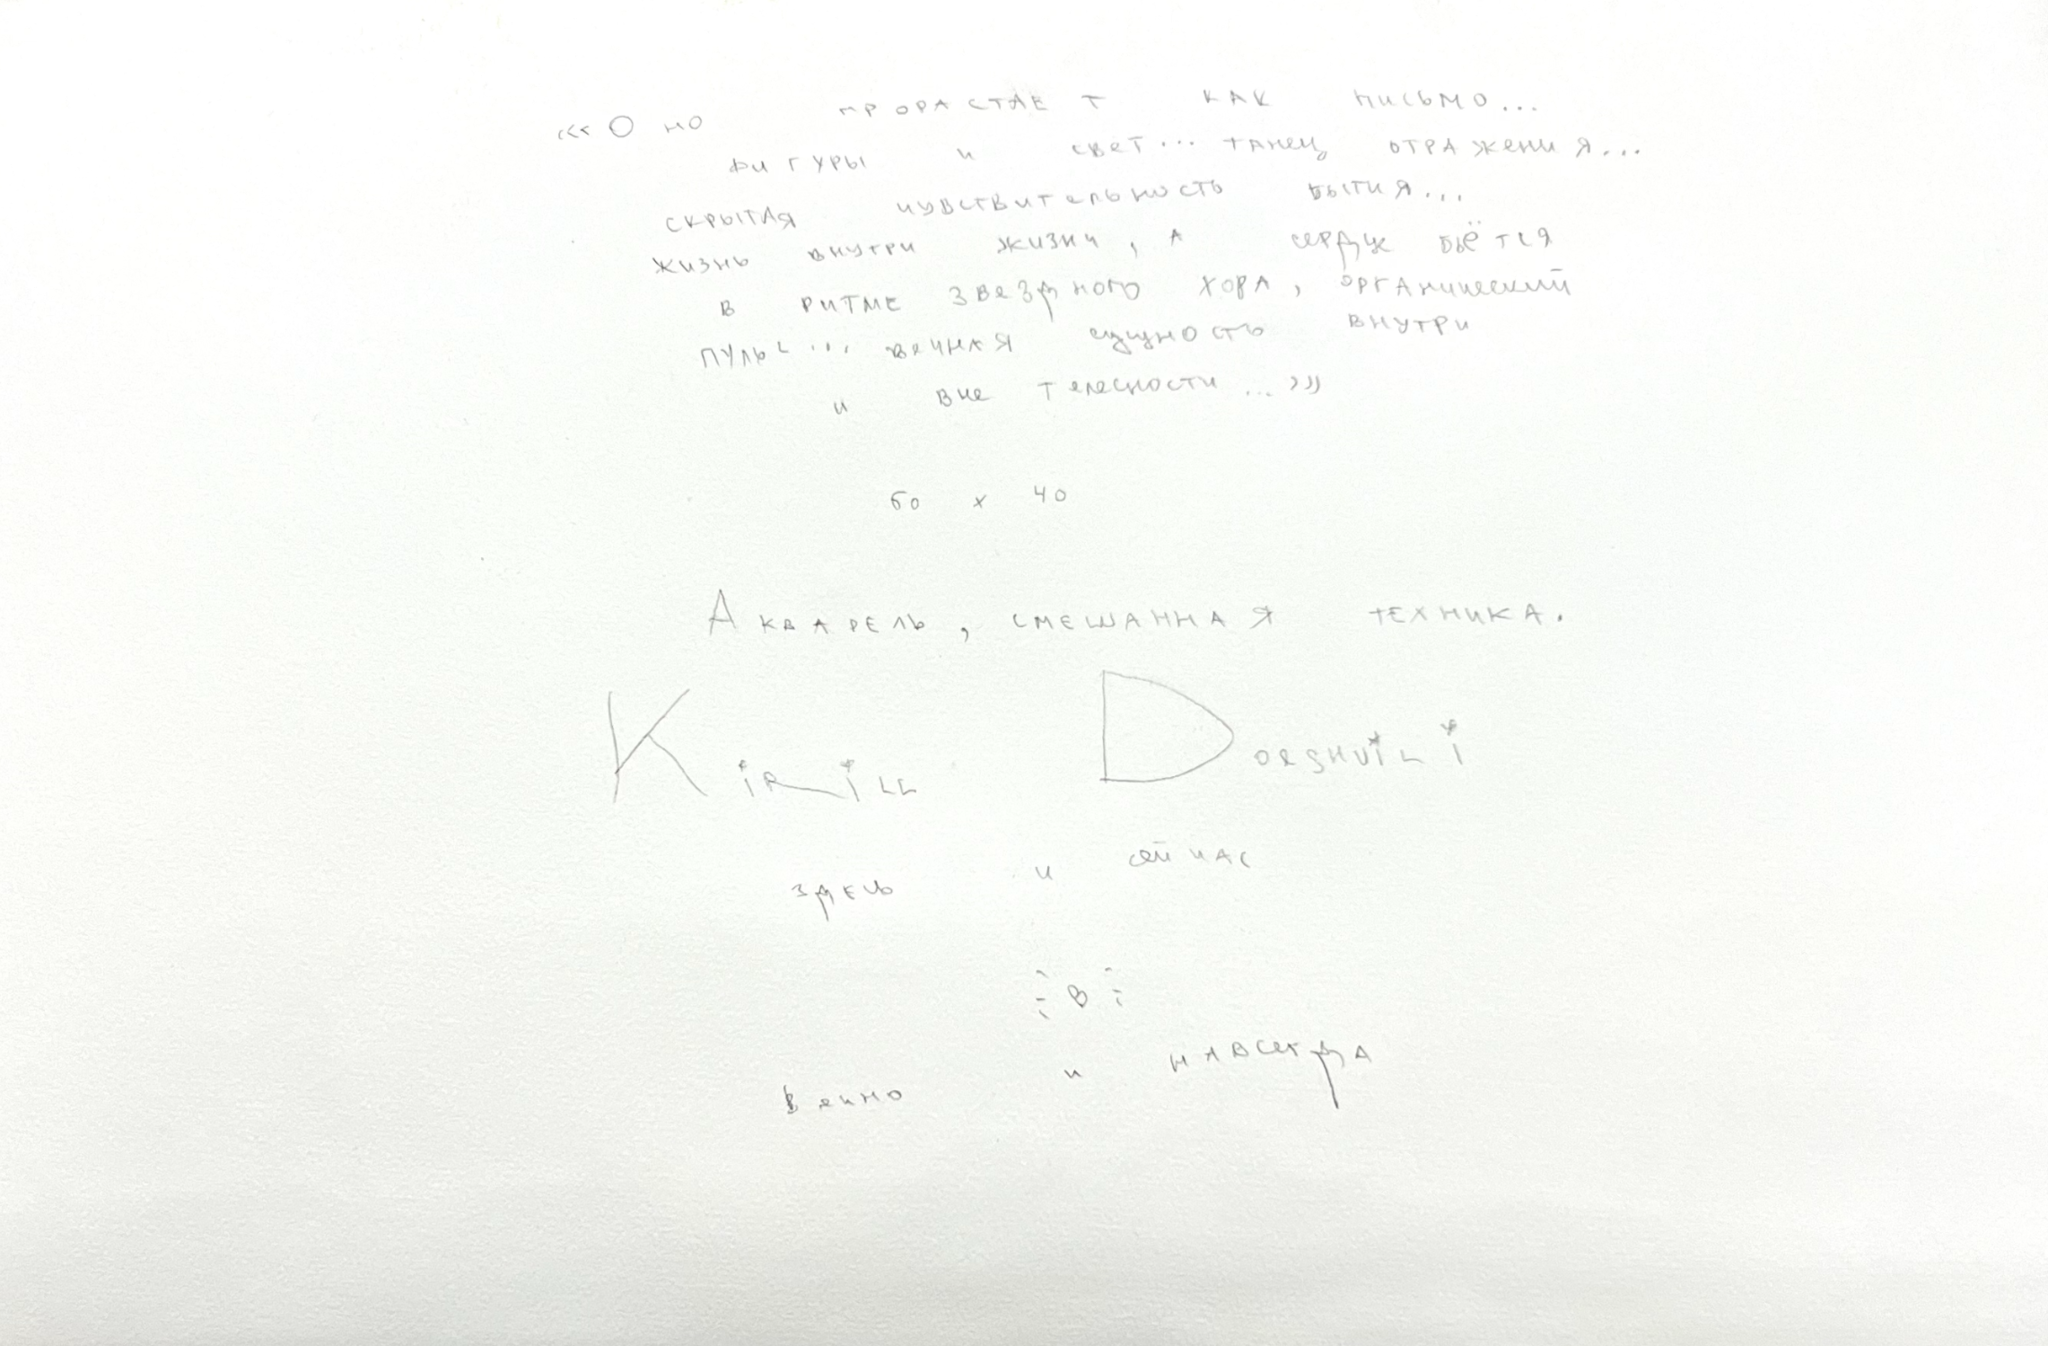 «« Оно прорастает как письмо...
фигуры и свет... танец отражения...
скрытая чувствительность бытия...
жизнь внутри жизни, а сердце бьётся
в ритме звездного хора, органический
пульс... вечная сущность внутри
и вне телесности...»»
60 х 40
Акварель, смешанная техника.
Kirill Dorshvili
здесь и сейчас
вечно и навсегда